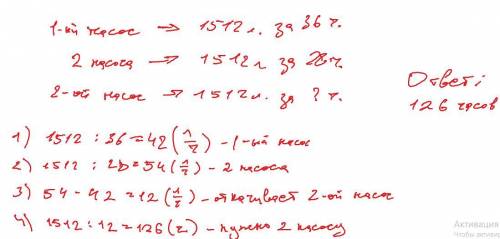 1-ый насос → 1512 л. за 36 ч.
2 насоса → 1512 л за 28 ч.
2-ой насос → 1512 л. за ? ч.
Ответ:
126 часов
1) 1512 : 36 = 42 (л/ч) - 1-ый насос
2) 1512 : 28 = 54 (л/ч) - 2 насоса
3) 54 - 42 = 12 (л/ч) - откачивает 2-ой насос
4) 1512 : 12 = 126 (ч) - нужно 2 насосу
Активация
Чтобы активи